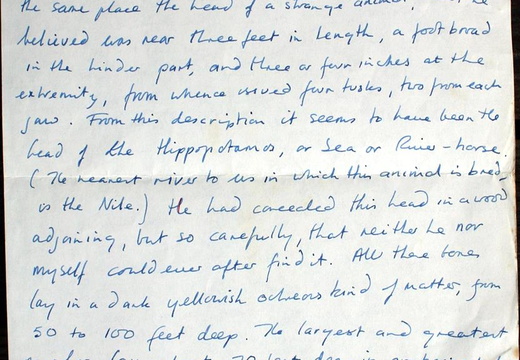 the same place the head of a strange animal, he
believed was near three feet in length, a foot broad
in the hinder part, and three or four inches at the
extremity, from whence issued four tusks, two from each
jaw. From this description it seems to have been the
head of the Hippopotamos, or Sea or River-horse.
(The nearest river to us in which this animal is bred
is the Nile.) He had concealed this head in a wood
adjoining, but so carefully, that neither he nor
myself could ever after find it. All these bones
lay in a dark yellowish ochreous kind of matter, from
50 to 100 feet deep. The largest and greatest